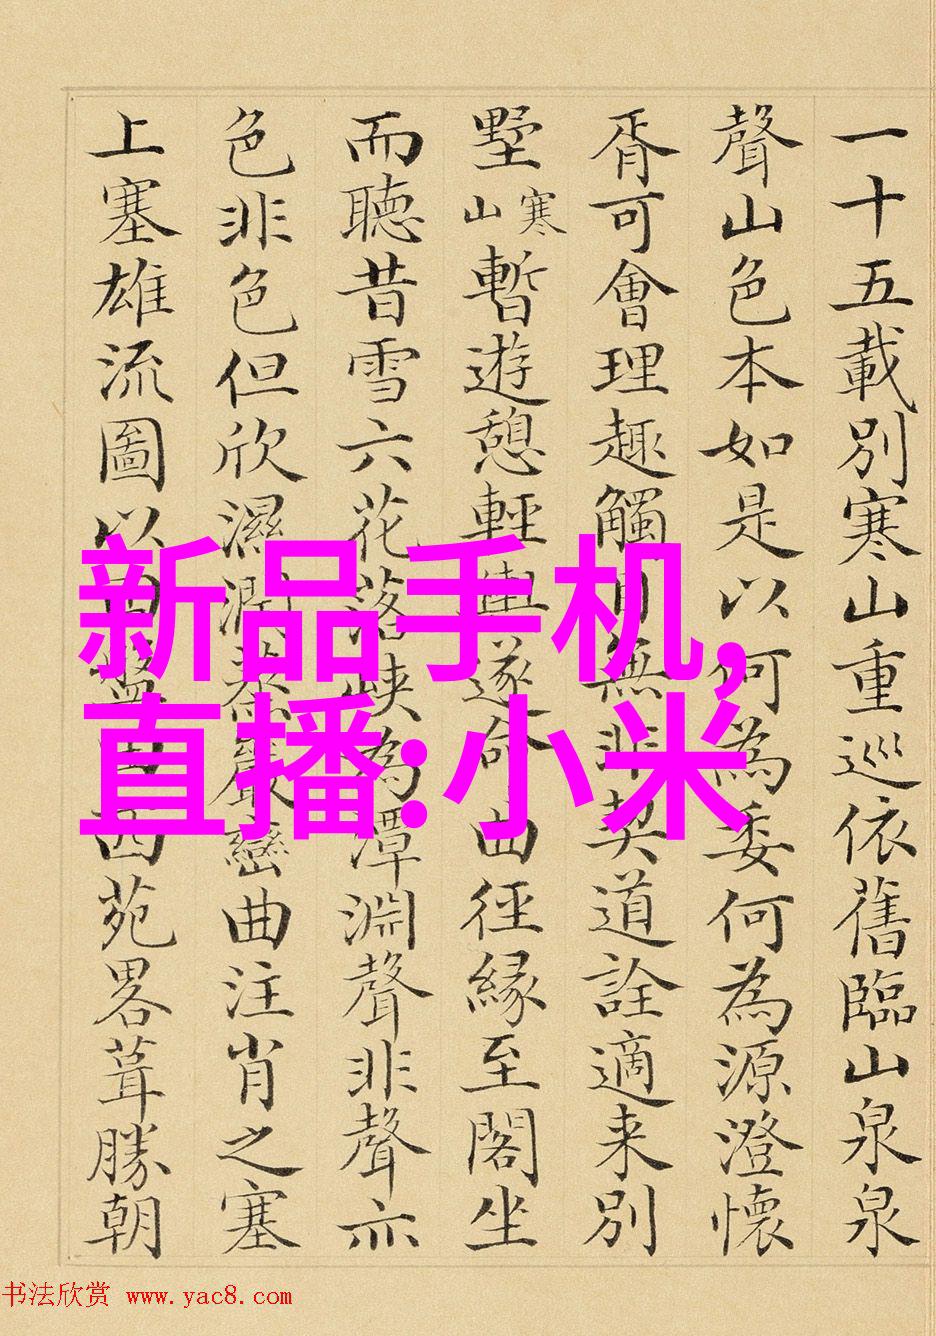 一十五載別寒山重巡依舊臨山泉泉
聲山色本如是以何為委何為源澄懷
胥可會理趣觸目無非契道詮適来別
墅寒山暫遊憩輕輿遂命曲徑緣至閣坐
而聽昔雪六花落峽為潭淵聲非聲亦
色非色但欣濕潤巖巒曲注肖之塞
上塞雄流圖以西苑畧葺勝朝
新品手机,
直播:小米
书法欣赏 www.yac8.com